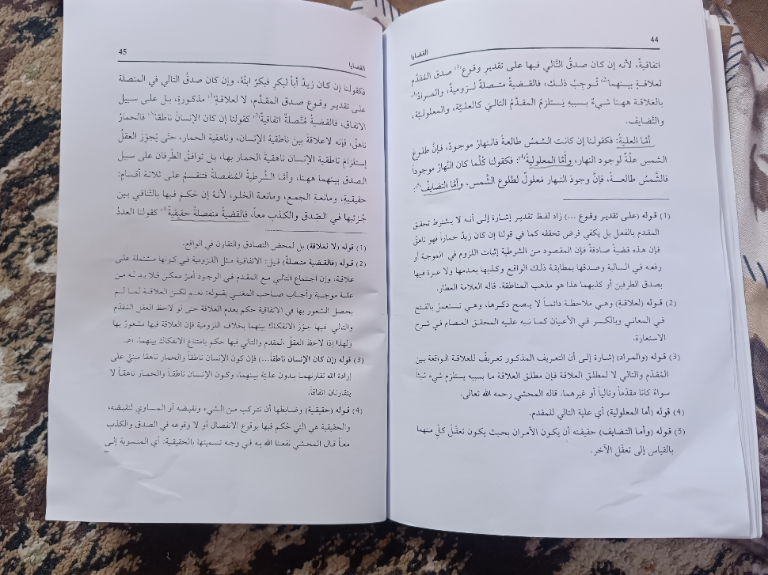 44
القضايا
اتفاقية، لأنه إن كان صدقُ التّالي فيها على تقدير وقوع(١) صدق المُقدَّم
لعلاقةٍ بينهما(2) تُوجِبُ ذلك، فالقضيةُ متصلةٌ لزوميةٌ، والمرادُ(3)
بالعلاقة ههنا شيءٌ بسببه يَستلزمُ المقدَّمُ التّاليَ كالعليّة، والمعلوليّة،
والتَّضايف.
أمَّا العلية: فكقولنا إن كانت الشمسُ طالعةً فالنهارُ موجودٌ، فإنَّ طلوعَ
الشمس علّةٌ لوجود النهار، وأمَّا المعلولية(4): فكقولنا كلَّما كان النَّهارُ موجوداً
فالشَّمسُ طالعــةٌ، فإنَّ وجودَ النهار مَعلولٌ لطلوع الشَّمس، وأمَّا التضايف(5):
(1) قوله (على تقدير وقوع ...) زاد لفظ تقدير إشارة إلى أنه لا يشترط تحقق
المقدم بالفعل بل يكفي فرض تحققه كما في قولنا إن كان زيدٌ حماراً فهو ناهقٌ
فإن هذه قضية صادقةٌ فإن المقصود من الشرطية إثبات اللزوم في الموجبة أو
رفعه في السالبة وصدقها بمطابقة ذلك الواقع وكذبها بعدمها ولا عبرة فيها
بصدق الطرفين أو كذبهما هذا هو مذهب المناطقة. قاله العلامة العطار.
(2) قوله (لعلاقة) وهي ملاحظة دائماً لا يصح ذكرها، وهي تستعمل بالفتح
في المعاني وبالكسر في الأعيان كما نبه عليه المحقق العصام في شرح
الاستعارة.
(3) قوله (والمراد) إشارة إلى أن التعريف المذكور تعريفٌ للعلاقة الواقعة بين
المُقدَّم والتالي لا لمطلق العلاقة فإن مطلق العلاقة ما بسببه يستلزم شيء شيئاً
سواءٌ كانا مقدَّماً وتالياً أو غيرهما. قاله المحشي رحمه الله تعالى.
(4) قوله (أما المعلولية) أي علية التالي للمقدم.
(5) قوله (وأما التضايف) حقيقته أن يكون الأمران بحيث يكون تعقّلُ كلٍّ منهما
بالقياس إلى تعقّل الآخر.
45
القضايا
فكقولنا إن كان زيدٌ أباً لبكرٍ فبكرٌ ابنُهُ، وإن كان صدقُ التالي في المتصلة
على تقدير وقوع صدق المقدَّم، لا لعلاقةٍ(1) مذكورةٍ، بل على سبيل
الاتفاق، فالقضيةُ مُتَّصلةٌ اتفاقيةٌ(2) كقولنا إن كان الإنسانُ ناطقاً(3) فالحمارُ
ناهقٌ، فإنه لاعلاقةَ بين ناطقية الإنسان، وناهقية الحمار، حتَّى يُجَوّزَ العقلُ
إستلزامَ ناطقية الإنسان ناهقيةَ الحمار بها، بل توافقَ الطَّرفان على سبيل
الصدق بينهما ههنا، وأمَّا الشَّرطيةُ المُنفصلةُ فتنقسمُ على ثلاثة أقسام:
حقيقيةٍ، ومانعةِ الجمع، ومانعة الخلو، لأنه إن حكم فيها بالتَّنافي بين
جُزئيها في الصِّدق والكذب معاً، فالقضيةُ منفصلةٌ حقيقيةٌ(4) كقولنا العددُ
(1) قوله (لا لعلاقة) بل لمحض التصادق والتقارن في الواقع.
(2) قوله (فالقضية متصلةٌ) قيل: الاتفاقية مثل اللزومية في كونها مشتملة على
علاقة، وإن اجتماع التالي مع المقدم في الوجود أمرٌ ممكن فلا بد له من
علة موجبة وأجاب صاحب المغني بقوله: نعم لكن العلاقة لما لم
يحصل الشعور بها في الاتفاقية حكم بعدم العلاقة حتى لو لاحظ العقل المقدَّم
والتالي فيها جوّز الانفكاك بينهما بخلاف اللزومية فإن العلاقة فيها مشعورٌ بها
ولهذا إذا لاحظ العقلُ المقدم والتالي فيها حكم بامتناع الانفكاك بينهما. اهـ
(3) قوله (إن كان الإنسان ناطقاً...) فإن كون الإنسان ناطقاً والحمار ناهقا مبنيٌ على
إرادة الله تقارنهما بدون عليّة بينهما، وكون الإنسان ناطقاً والحمار ناهقاً لا
يتقارنان اتفاقاً.
(4) قوله (حقيقية) وضابطها أن تتركب من الشيء ونقيضه أو المساوي لنقيضه،
والحقيقية هي التي حُكم فيها بوقوع الانفصال أو لا وقوعه في الصدق والكذب
معاً قال المحشي نفعنا الله به في وجه تسميتها بالحقيقية: أي المنسوبة إلى